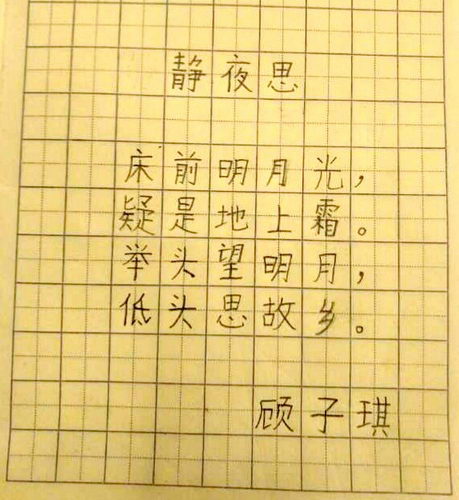 静夜思
床前明月光，
疑是地上霜。
举头望明月，
低头思故乡。
顾子琪